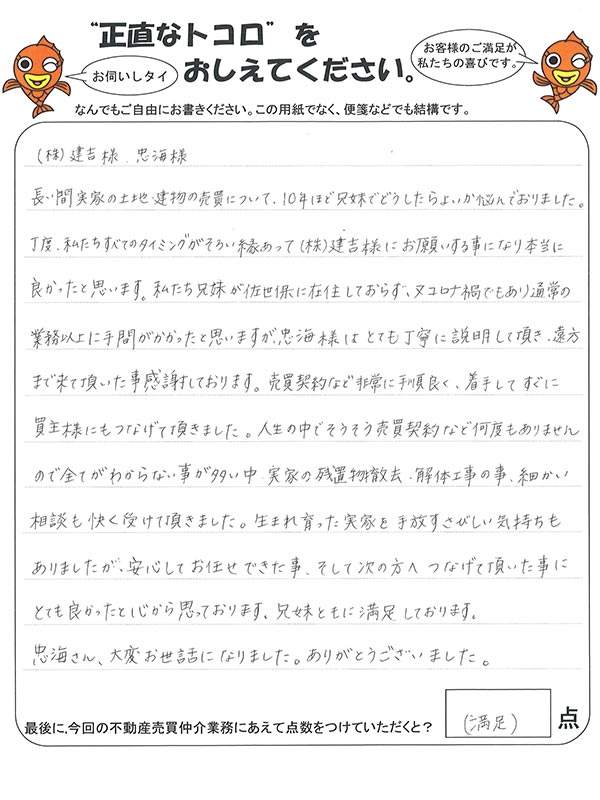 "正直なトコロ"を
おしえてください。
お伺いしタイ
お客様のご満足が
私たちの喜びです。
なんでもご自由にお書きください。この用紙でなく、便箋などでも結構です。
(株)建吉様 忠海様
長い間実家の土地・建物の売買について、10年ほど兄妹でどうしたらよいか悩んでおりました。
丁度、私たちすべてのタイミングがそろい縁あって(株)建吉様にお願いする事になり本当に
良かったと思います。私たち兄妹が佐世保に在住しておらず、又コロナ禍でもあり通常の
業務以上に手間がかかったと思いますが、忠海様はとても丁寧に説明して頂き、遠方
まで来て頂いた事感謝しております。売買契約など非常に手順良く、着手してすぐに
買主様にもつなげて頂きました。人生の中でそうそう売買契約など何度もありません
ので全てがわからない事が多い中、実家の残置物撤去・解体工事の事、細かい
相談も快く受けて頂きました。生まれ育った実家を手放すさびしい気持ちも
ありましたが、安心してお任せできた事、そして次の方へつなげて頂いた事に
とても良かったと心から思っております。兄妹ともに満足しております。
忠海さん、大変お世話になりました。ありがとうございました。
最後に、今回の不動産売買仲介業務にあえて点数をつけていただくと?
(満足)
点